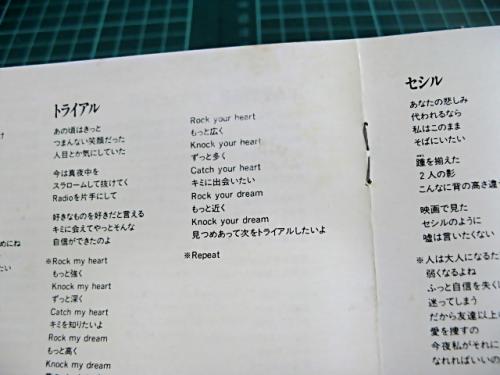 トライアル
あの頃はきっと
つまんない笑顔だった
人目とか気にしていた
今は真夜中を
スラロームして抜けてく
Radioを片手にして
好きなものを好きだと言える
キミに会えてやっとそんな
自信ができたのよ
※Rock my heart
もっと強く
Knock my heart
ずっと深く
Catch my heart
キミを知りたいよ
Rock my dream
もっと高く
Knock my dream
Rock your heart
もっと広く
Knock your heart
ずっと多く
Catch your heart
キミに出会いたい
Rock your dream
もっと近く
Knock your dream
見つめあって次をトライアルしたいよ
※Repeat
セシル
あなたの悲しみ
代われるなら
私はこのまま
そばにいたい
踵を揃えた
2人の影
こんなに背の高さ違
映画で見た
セシルのように
嘘は言いたくない
※人は大人になるた
弱くなるよね
ふっと自信を失く
迷ってしまう
だから友達以上
愛を捜すの
今夜私がそれに
なれればいいの
めにね
たい